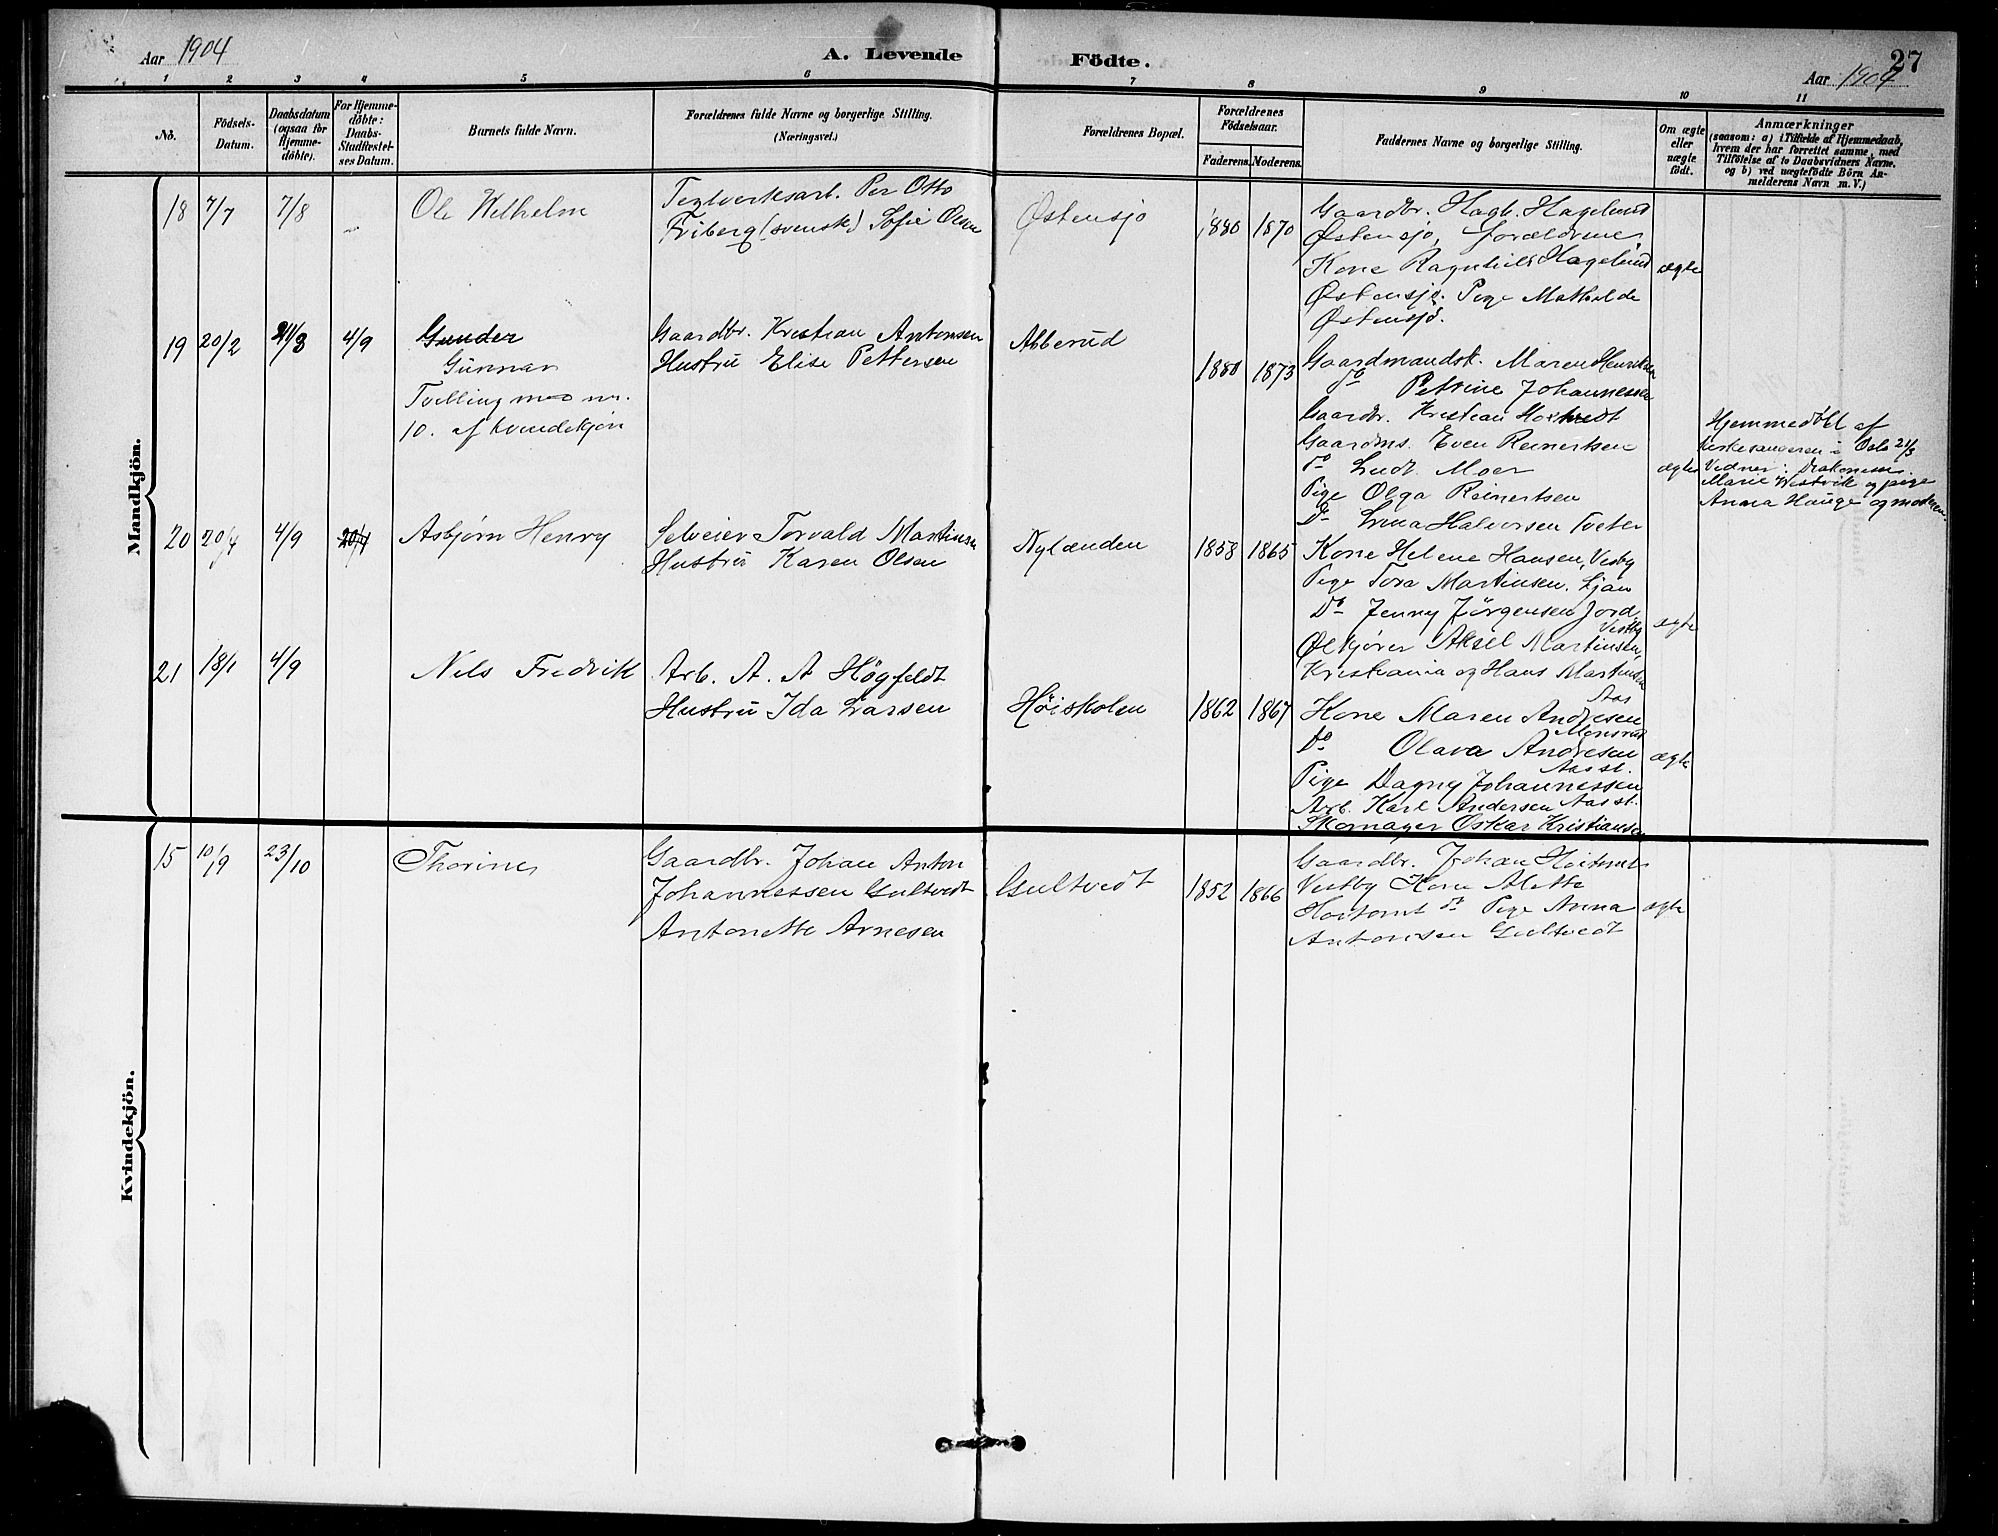 Aar 1904
A. Levende
Födte.
27
Aar 1904
1 2 3 4 5 6 7 8 9 10 11
No.
Födsels-
Datum.
Daabsdatum
(ogsaa for
Hjemme-
döbte).
For Hjemme-
döbte:
Daabs-
Stadfæstel-
ses Datum.
Barnets fulde Navn.
Forældrenes fulde Navne og borgerlige Stilling.
(Næringsvei.)
Forældrenes Bopæl.
Forældrenes
Födselsaar.
Faderens. Moderens.
Faddernes Navne og borgerlige Stilling.
Om ægte
eller
uægte
födt.
Anmærkninger
(saasom: a) i Tilfælde af Hjemmedaab,
hvem der har forrettet samme, med
Tilföielse af to Daabsvidners Navne.
og b) ved uægtefödte Börn An-
melderens Navn m. V.)
Mandkjön.
18 7/7 7/8
Ole Wilhelm
Teglverksarb. Per Otto
Friberg (svensk) Sofie Olsen
Østensjo
1880 1870
Gaardbr. Hagb. Hagelund
Østensjo, forældrene,
Kone Ragnhild Hagelund
Østensjø. Pige Mathilde
Østensjø.
ægte
19 20/2 21/3 4/9
Gunder
Gunnar
Tvilling med nr.
10. af kvindekjön
Gaardbr. Kristian Antonsen
Hustru Elise Pettersen
Abberud
1880 1873
Gaardmandsk. Maren Henriksen
do Petrine Johannessen
Gaardbr. Kristian
Gaardms. Even Reinertsen
do Ludv. Moer
Pige Olga Reinertsen
Do Halvorsen Tveter
ægte
Hjemmedöbt af
kirkesangeren i Oslo 21/3
Vidner: Diakonisse
Marie Westvik og pige
Anna Hauge og moderen.
20 20/4 4/9 20/4
Asbjørn Henry
Selveier Torvald Martinsen
Hustru Karen Olsen
Nylænden
1858 1865
Kone Helene Hansen, Vesby
Pige Tora Martinsen. Ljan
Do Jenny Jörgensen Jord,
Vestby
Ølkjører Aksel Martinsen,
Kristiania og Hans Martinsen
Aas
ægte
21 18/1 4/9
Nels Fredrik
Arb. A. A Högfeldt
Hustru Ida Larsen
Höiskolen
1862 1867
Kone Maren Andresen
Do Olava Andresen
Aas st.
Pige Dagny Johannessen
Arb. Karl Andersen Aas st.
Skomager Oskar Kristiansen
ægte
Kvindekjön.
15 10/9 23/10
Thorine
Gaardbr. Johan Anton
Johannessen Gultvedt
Antonette Arnesen
Gultvedt
1852 1866
Gaardbr. Johan Hoitomt
Vestby Kone Alette
Hoitomt do Pige Anna
Antonsen Gultvedt
ægte